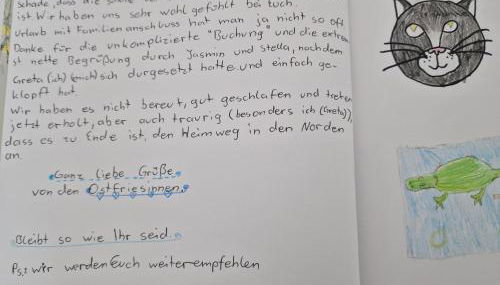 schade, dass die
ist. Wir haben uns sehr wohl gefühlt bei Euch.
Urlaub mit Familienanschluss hat man ja nicht so oft
Danke für die unkomplizierte "Buchung" und die extra
st nette Begrüßung durch Jasmin und Stella, nachdem
Greta (ich) sich durgesetzt hatte und einfach ge-
klopft hat.
Wir haben es nicht bereut, gut geschlafen und treten
jetzt erholt, aber auch traurig (besonders ich (Greta)),
dass es zu Ende ist, den Heimweg in den Norden
an.
Ganz liebe Grüße
von den Ostfriesinnen
Bleibt so wie Ihr seid.
Ps.: Wir werden Euch weiterempfehlen